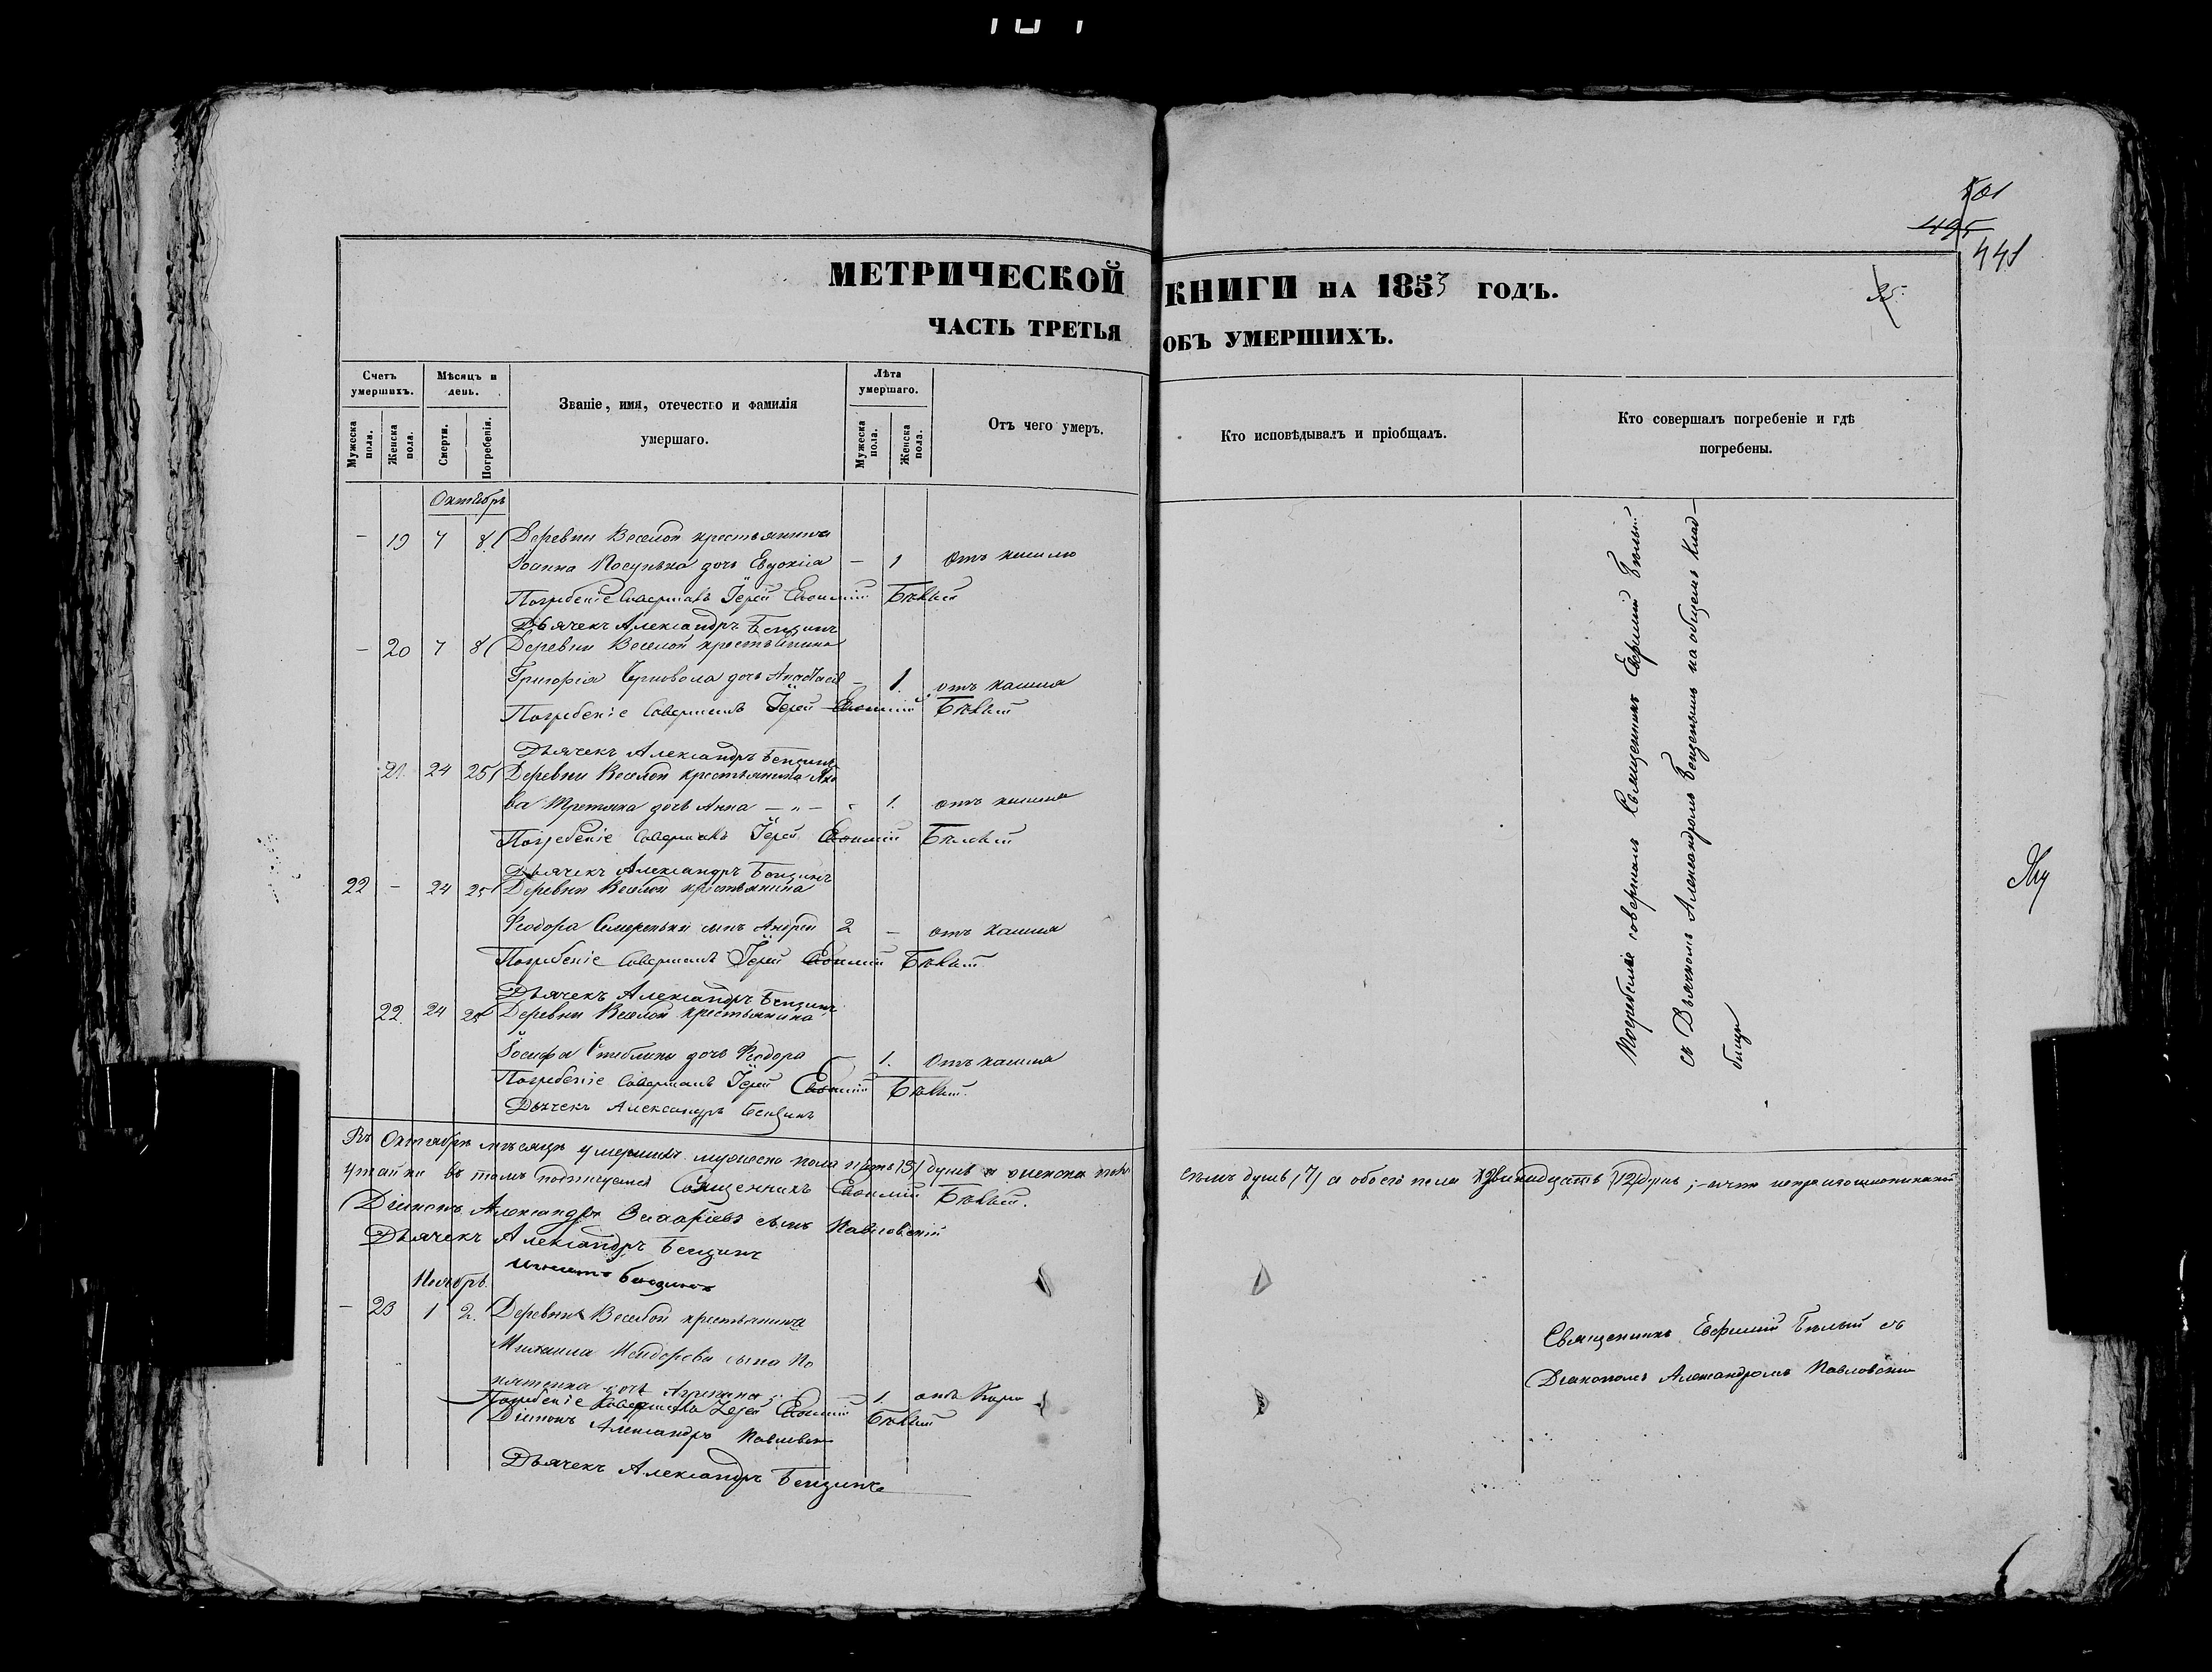 501
495
441
МЕТРИЧЕСКОЙ КНИГИ НА 1853 ГОДЪ.
ЧАСТЬ ТРЕТЬЯ ОБЪ УМЕРШИХЪ.
Счетъ умершихъ.
Мѣсяцъ и день.
Званіе, имя, отечество и фамилія умершаго.
Лѣта умершаго.
Отъ чего умеръ.
Кто исповѣдывалъ и пріобщалъ.
Кто совершалъ погребеніе и гдѣ погребены.
Мужеска пола.
Женска пола.
Смерти.
Погребенія.
Мужеска пола.
Женска пола.
Октябрь
– 19 7 8 Деревни Веселой крестьянина
Іоанна дочь Евдокіа – 1 Отъ кашлю
Погребеніе Совершалъ Іерей Евѳимій Бѣлый
Дьячекъ Александръ Бензинъ
– 20 7 8 Деревни Веселой крестьянина
Григорія Чорновола дочь – 1. отъ кашля
Погребеніе Совершалъ Іерей Евѳимій Бѣлый
Дьячекъ Александръ Бензинъ
21. 24 25 Деревни Веселой крестьянина Яко
ва Третяка дочь Анна – „ – 1. отъ кашля
Погребеніе Совершалъ Іерей Евѳимій Бѣлый
Дьячекъ Александръ Бензинъ
22 – 24 25 Деревни Веселой крестьянина
Ѳеодора сынъ Андрей 2 – отъ кашля
Погребеніе Совершалъ Іерей Евѳимій Бѣлый
Дьячекъ Александръ Бензинъ
22. 24 25 Деревни Веселой крестьянина
Іосифа дочь Ѳеодора 1. Отъ кашля
Погребеніе Совершалъ Іерей Евѳимій Бѣлый.
Дьячекъ Александръ Бензинъ
Погребеніе совершалъ Священникъ Евфимій Бѣлый
съ Дьячкомъ Александромъ Бензинымъ на общемъ клад-
бищѣ
Въ Октябрѣ мѣсяцѣ умершихъ мужеска пола пять /5/ душъ а женска пола семъ душъ /7/ а обоего пола двѣнадцать /12/ душъ;
утайки въ томъ подписуемся Священникъ Евѳимій Бѣлый.
Діаконъ Александръ Захаріевъ сынъ Павловскій
Дьячекъ Александръ Бензинъ
Ноябрь.
– 23 1 2. Деревни Веселой крестьянина
Михаила сына
дочь 1.
Погребеніе Совершалъ Іерей Евѳимій Бѣлый
Діаконъ Александръ
Дьячекъ Александръ Бензинъ
Священникъ Евфимій Бѣлый съ
Діакономъ Александромъ Павловскимъ